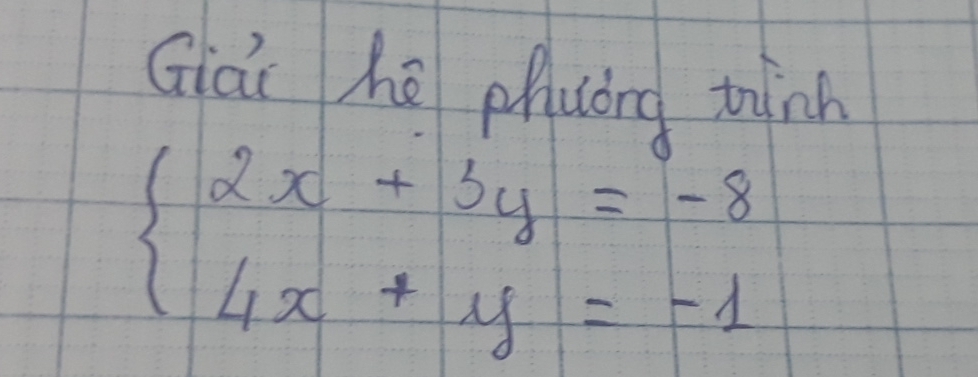 Giải hệ phương trình
{ 2x + 3y = -8
4x + y = -1